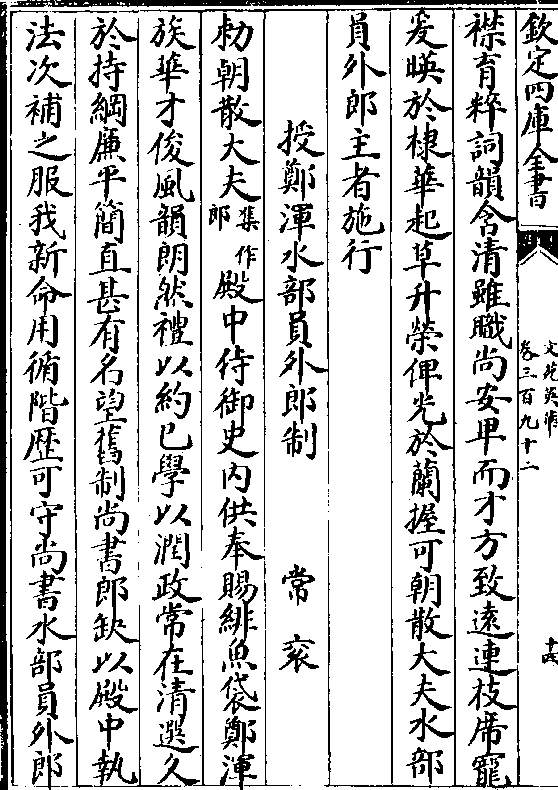 欽定四庫全書
文苑英華
卷三百九十二
十四
襟育粹詞韻含清雖職尚安卑而才方致遠連枝席寵
爰暎於棣華起草升榮俾光於蘭握可朝散大夫水部
員外郎主者施行
授鄭渾水部員外郎制 常衮
勅朝散大夫集作郎殿中侍御史内供奉賜緋魚袋鄭渾
族華才俊風韻朗然禮以約已學以潤政常在清選久
於持綱廉平簡直甚有名望舊制尚書郎缺以殿中執
法次補之服我新命用循階歴可守尚書水部員外郎